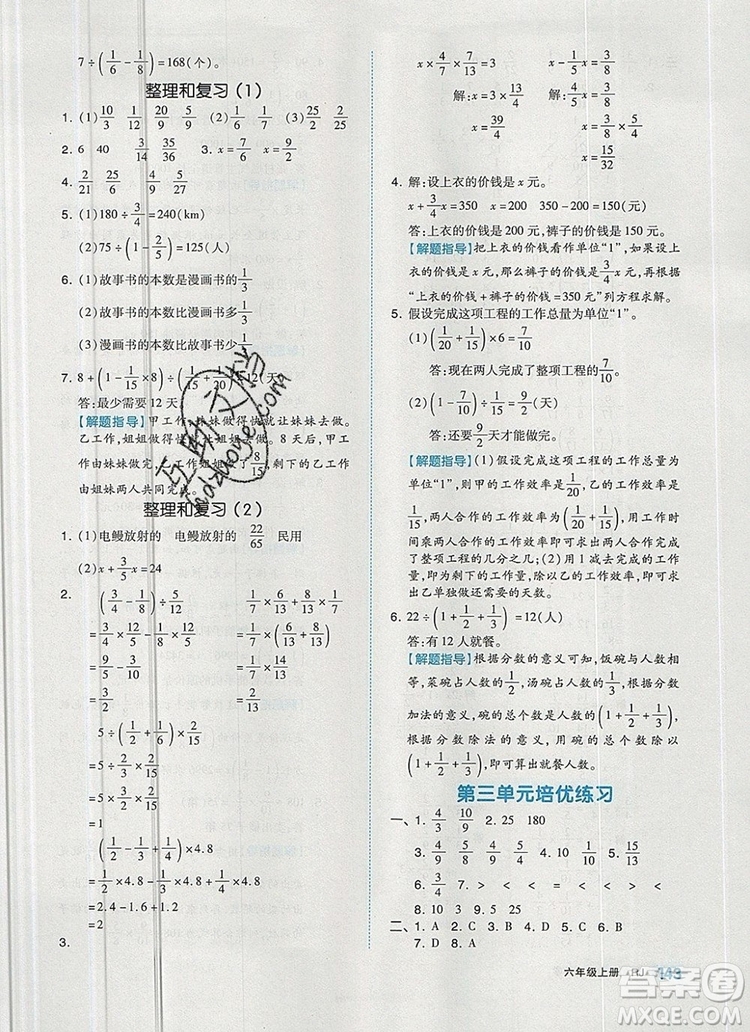 7÷(1/6-1/8)=168(个)。
整理和复习(1)
1. (1)10/3 1/12 20/9 5/9 (2)1/4 1/4 (3)2/25 2/25
2. 6 40 3/14 35/3 3. x=7/6 x=9/4
4. 2/21 6/25 5/16 4/27
5. (1)180÷3/4=240(km)
(2)75÷(1-2/5)=125(人)
6. (1)故事书的本数是漫画书的1/3
(2)漫画书的本数比故事书多1/3
(3)漫画书的本数比故事书少1/3
7. 8+(1-1/15×8)÷(1/15+1/20)=12(天)
答:最少需要12天
【解题指导】甲工作,妹妹做得快就让妹妹去做。
乙工作,姐姐做得快就让姐姐去做。8天后,甲工
作由妹妹做完,乙工作姐姐做了8/15,剩下的乙工
作由姐妹两人共同完成。
整理和复习(2)
1. (1)电鳗放射的 电鳗放射的 22/65 民用
(2)x+3/5x=24
2. (3/4-1/8)÷5/12 1/7×6/13+8/13×1/7
=(3/4-1/8)×12/5 =1/7×(6/13+8/13)
=3/4×12/5-1/8×12/5 =1/7×14/13
=9/5-3/10 =2/13
=3/2
5÷(1/2+1/6)×2/15
=5÷2/3×2/15
=5×3/2×2/15
=1
(1/2+1/3-1/4)÷1/4×4.8
=1/2×4.8+1/3×4.8-1/4×4.8
=2.4+1.6-1.2
=2
3.
x×4/7÷3/10=13 x-3/5x=3/8
解:x=3×13/4 解:2/5x=3/8
x=39/4 x=15/16
x=15/32
4. 解:设上衣的价钱是x元。
x+3/4x=350 x=200 350-200=150(元)
答:上衣的价钱是200元,裤子的价钱是150元。
【解题指导】把上衣的价钱看作单位“1”,如果设上
衣的价钱是x元,那么裤子的价钱是3/4x元,再根据
“上衣的价钱+裤子的价钱=350元”列方程求解。
5. 假设完成这项工程的工作总量为单位“1”。
(1)(1/20+1/15)×6=7/10
答:现在两人完成了整项工程的7/10。
(2)(1-7/10)÷1/15=9/2(天)
答:还要9/2天才能做完。
【解题指导】(1)假设完成这项工程的工作总量为
单位“1”,则甲的工作效率为1/20,乙的工作效率为
1/15,两人合作的工作效率为(1/20+1/15),用工作时
间乘两人合作的工作效率即可求出两人合作完成
了整项工程的几分之几;(2)用1减去完成的工作
量,即为剩下的工作量,除以乙的工作效率,即可求
出乙单独做完的天数。
6. 22÷(1+1/2+1/3)=12(人)
答:有12人就餐。
【解题指导】根据分数的意义可知,饭碗与人数相
等,菜碗占人数的1/2,汤碗占人数的1/3,根据分数
加法的意义,碗的总个数是人数的(1+1/2+1/3),
根据分数除法的意义,用碗的总个数除以
(1+1/2+1/3)即得就餐人数。
第三单元培优练习
一、1. 4/3 10/9 2. 25 180
3. 9/16 15/8 4/9 4. 10 5. 1/10 4/15
6. > = > < < > < <
8. 10 3 9. 5 25
二、1. A 2. C 3. A 4. C 5. C 6. B
7. D 8. A
六年级上册 RJ 143
答案圈
MXQE.COM
互助文档